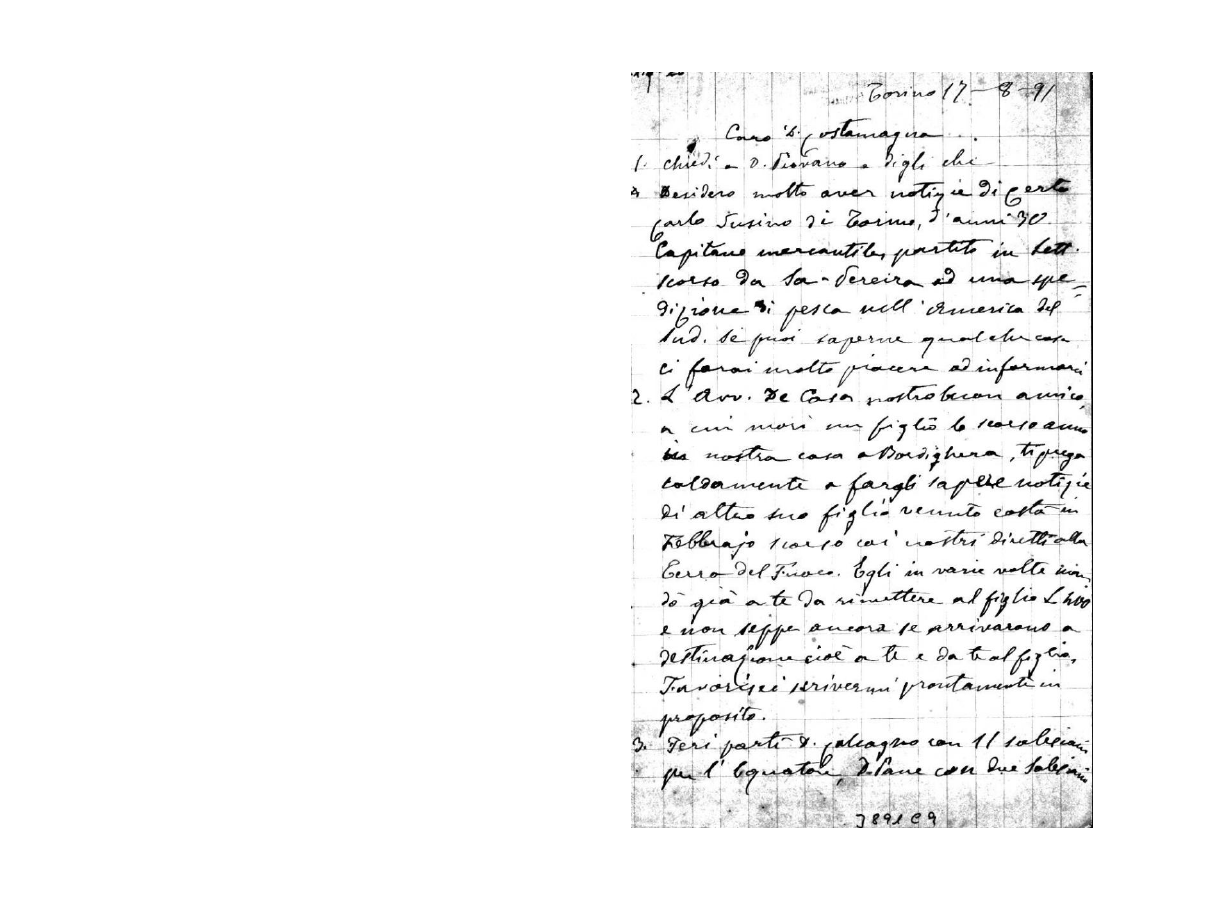 Torino 17-8-91
Caro D. Costamagna
1. Chiedi a D. Piovano e digli che
Desidero molto aver notizie di certo
Carlo Susino di Torino, d'anni 30
Capitano mercantile, partito in Sett.
scorso da Sa-Pereira ad una spe-
dizione di pesca nell'America del
Sud. Se puoi saperne qualche cosa
ci farai molto piacere ad informarci
2. L'Avv. De Casa nostro buon amico,
a cui morì un figlio lo scorso anno
in nostra casa a Bordighera, ti prega
caldamente a fargli sapere notizie
di altro suo figlio venuto costà in
Febbrajo scorso coi nostri diretti alla
Terra del Fuoco. Egli in varie volte man
dò già a te da rimettere al figlio L
e non seppe ancora se arrivarono a
destinazione cioè a te e da te al figlio.
Favorisci scrivermi prontamente in
proposito.
3. Jeri partì D. Calcagno con 11 salesiani
per l'Equatore, D. Pane con due Salesiani